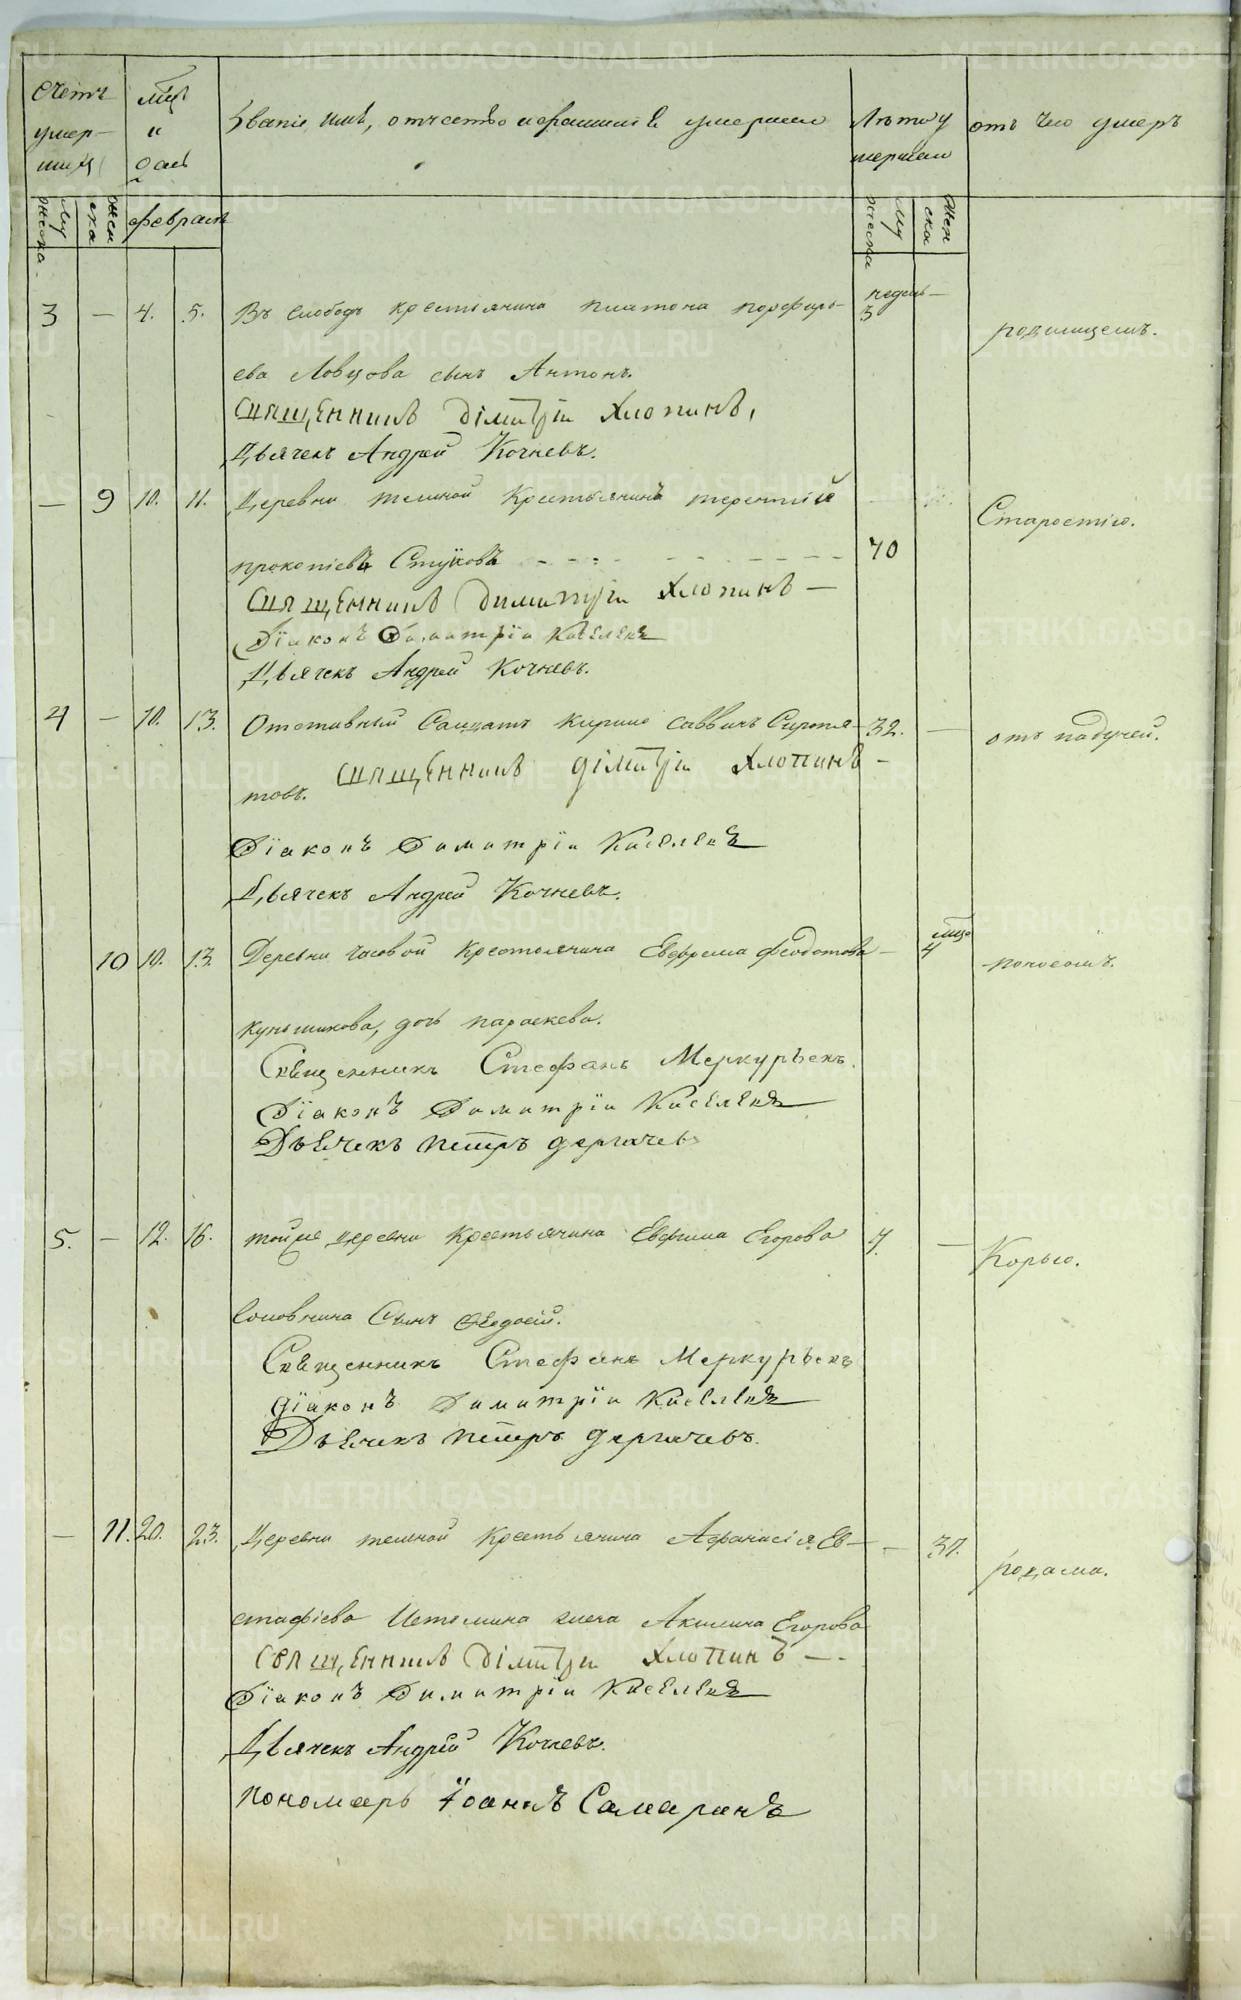 Счетъ умершихъ
мцъ и дни
Званіе имя, отчество и фамилія умершаго
Лѣта умершаго
отъ чего умеръ
мужеска
женска
февраля
мужеска
женска
3 — 4. 5. Въ слободѣ крестьянина платона порфирь- недель 3 — родимцемъ.
ева Ловцова сынъ Антонъ.
Священникъ Дімитрій Хлопинъ,
Дьячекъ Андрей Кочневъ.
— 9 10. 11. Деревни темной Крестьянинъ терентій Старостію.
прокопіевъ Стуковъ 70
Священникъ Димитрій Хлопинъ —
Діаконъ Димитрій Киселевъ
Дьячекъ Андрей Кочневъ.
4 — 10. 13. Отставный Салдатъ Кирило Саввинъ Сиротя- 32. — отъ падучей.
товъ. Священникъ Дімитрій Хлопинъ —
Діаконъ Димитрій Киселевъ
Дьячекъ Андрей Кочневъ.
10 10. 13. Деревни часовой Крестьянина Евфрема Федотова — мцо 4 поносомъ.
дочь параскева.
Священникъ Стефанъ Меркурьевъ.
Діаконъ Димитрій Киселевъ
Дьячекъ петръ дергачевъ
5. — 12. 16. тойже деревни Крестьянина Евфима Егорова — Корью.
Сынъ Федосій.
Священникъ Стефанъ Меркурьевъ
Діаконъ Димитрій Киселевъ
Дьячекъ петръ дергачевъ.
— 11. 20. 23. Деревни темной Крестьянина Афанасія Ев- — 37. родами.
стафіева Истомина жена Акилина Егорова
Священникъ Дімитрій Хлопинъ —
Діаконъ Димитрій Киселевъ
Дьячекъ Андрей Кочневъ.
пономарь Іоаннъ Самаринъ
METRIKI.GASO-URAL.RU